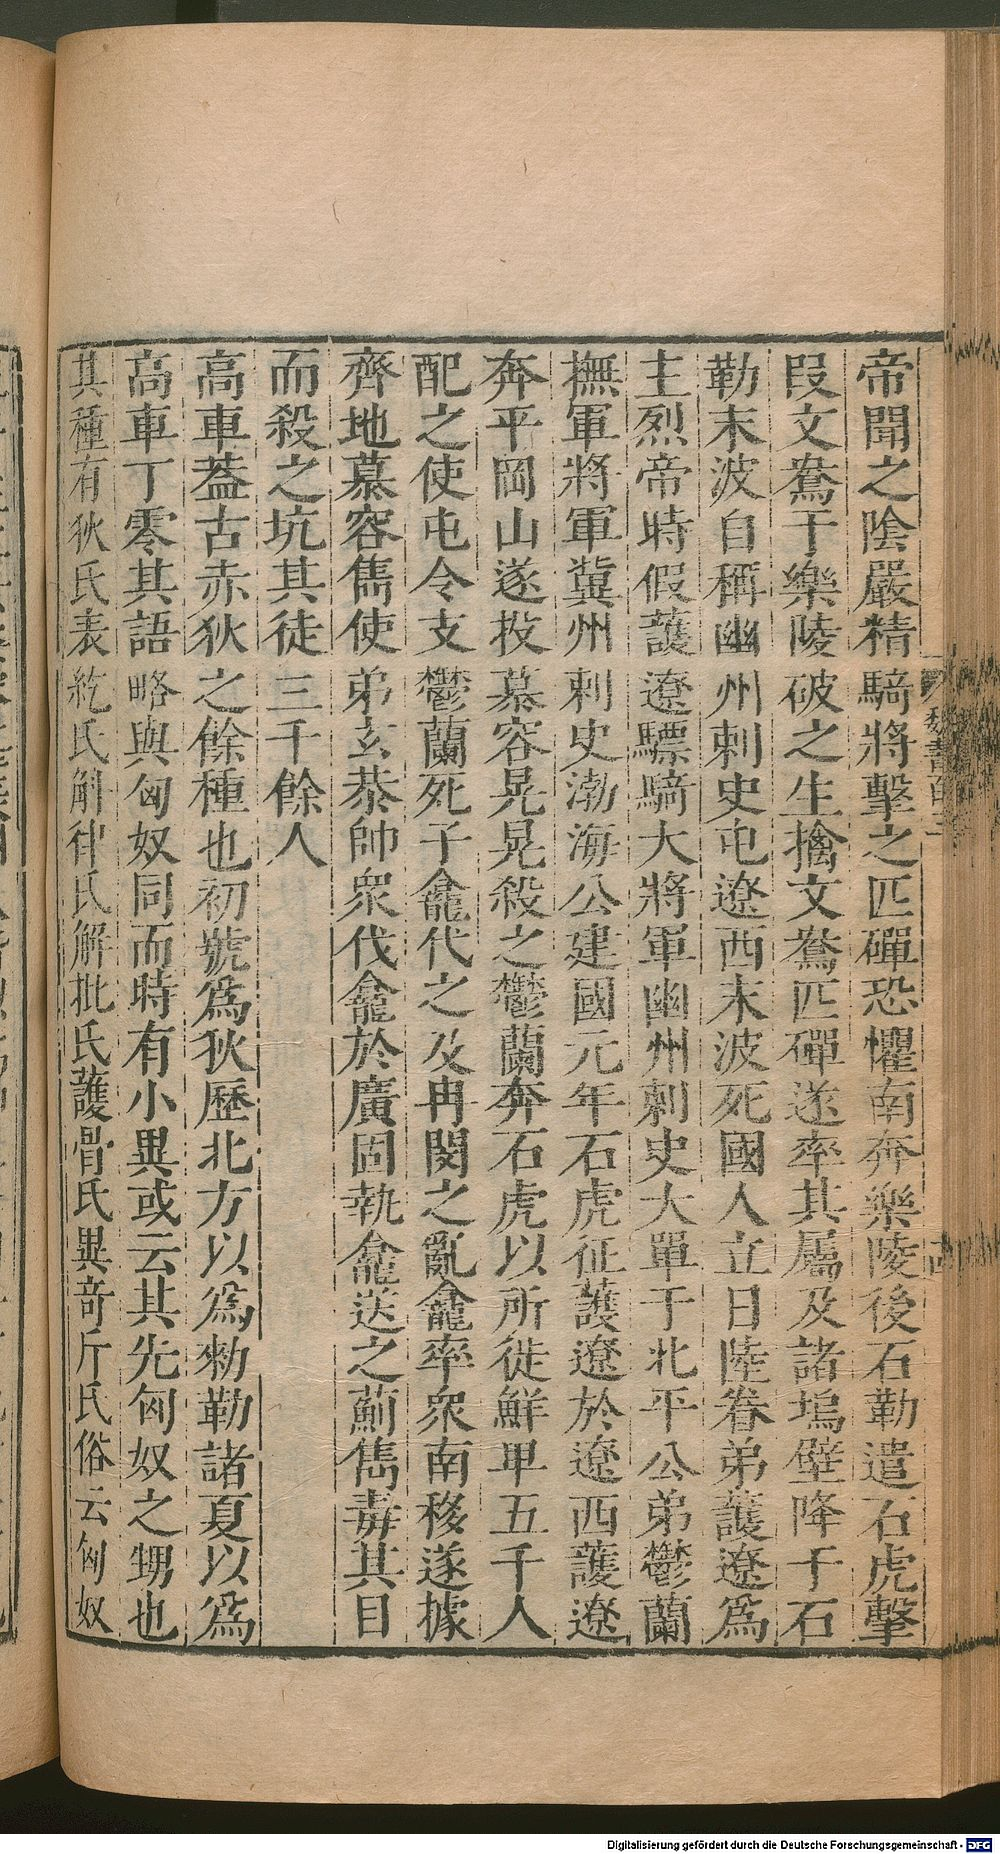 帝聞之陰嚴精騎將擊之匹磾恐懼南奔樂陵後石勒遣石虎擊
段文鴦于樂陵破之生擒文鴦匹磾遂率其屬及諸塢壁降于石
勒末波自稱幽州刺史屯遼西末波死國人立日陸眷弟護遼爲
主烈帝時假護遼驃騎大將軍幽州刺史大單于北平公弟鬱蘭
撫軍將軍冀州刺史渤海公建國元年石虎征護遼於遼西護遼
奔平岡山遂投慕容晃晃殺之鬱蘭奔石虎以所徙鮮卑五千人
配之使屯令支鬱蘭死子龕代之及冉閔之亂龕率衆南移遂據
齊地慕容雋使弟玄恭帥衆伐龕於廣固執龕送之薊雋毒其目
而殺之坑其徒三千餘人
高車蓋古赤狄之餘種也初號爲狄歷北方以爲勑勒諸夏以爲
高車丁零其語略與匈奴同而時有小異或云其先匈奴之甥也
其種有狄氏表紇氏斛律氏解批氏護骨氏異奇斤氏俗云匈奴
魏書百三
Digitalisierung gefördert durch die Deutsche Forschungsgemeinschaft - DFG